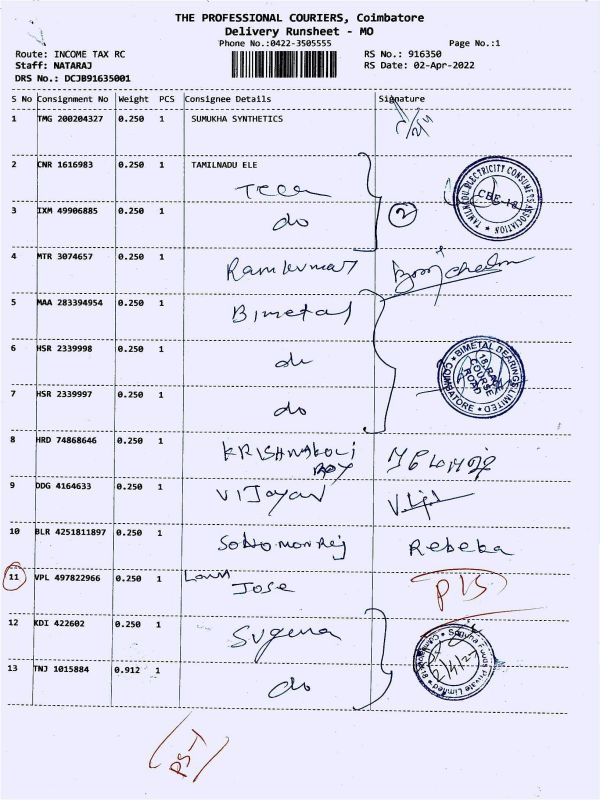 THE PROFESSIONAL COURIERS, Coimbatore
Delivery Runsheet - MO
Phone No.:0422-3505555
Page No.:1
Route: INCOME TAX RC
RS No.: 916350
Staff: NATARAJ
RS Date: 02-Apr-2022
DRS No.: DCJB91635001
S No Consignment No Weight PCS Consignee Details Signature
1 TMG 200204327 0.250 1 SUMUKHA SYNTHETICS
2 CNR 1616983 0.250 1 TAMILNADU ELE
TAMILNADU ELECTRICITY CONSUMERS ASSOCIATION
CBE-18
3 IXM 49906885 0.250 1 do
2
4 MTR 3074657 0.250 1 Ramkumar
5 MAA 283394954 0.250 1 Bimetal
6 HSR 2339998 0.250 1 do
BIMETAL BEARINGS LIMITED
18, RACE COURSE ROAD
COIMBATORE
7 HSR 2339997 0.250 1 do
8 HRD 74868646 0.250 1
9 DDG 4164633 0.250 1 Vijayan
10 BLR 4251811897 0.250 1 Rebeka
11 VPL 497822966 0.250 1 Jose
12 KDI 422602 0.250 1 Suguna
Suguna Foods Private Limited
13 TNJ 1015884 0.912 1 do